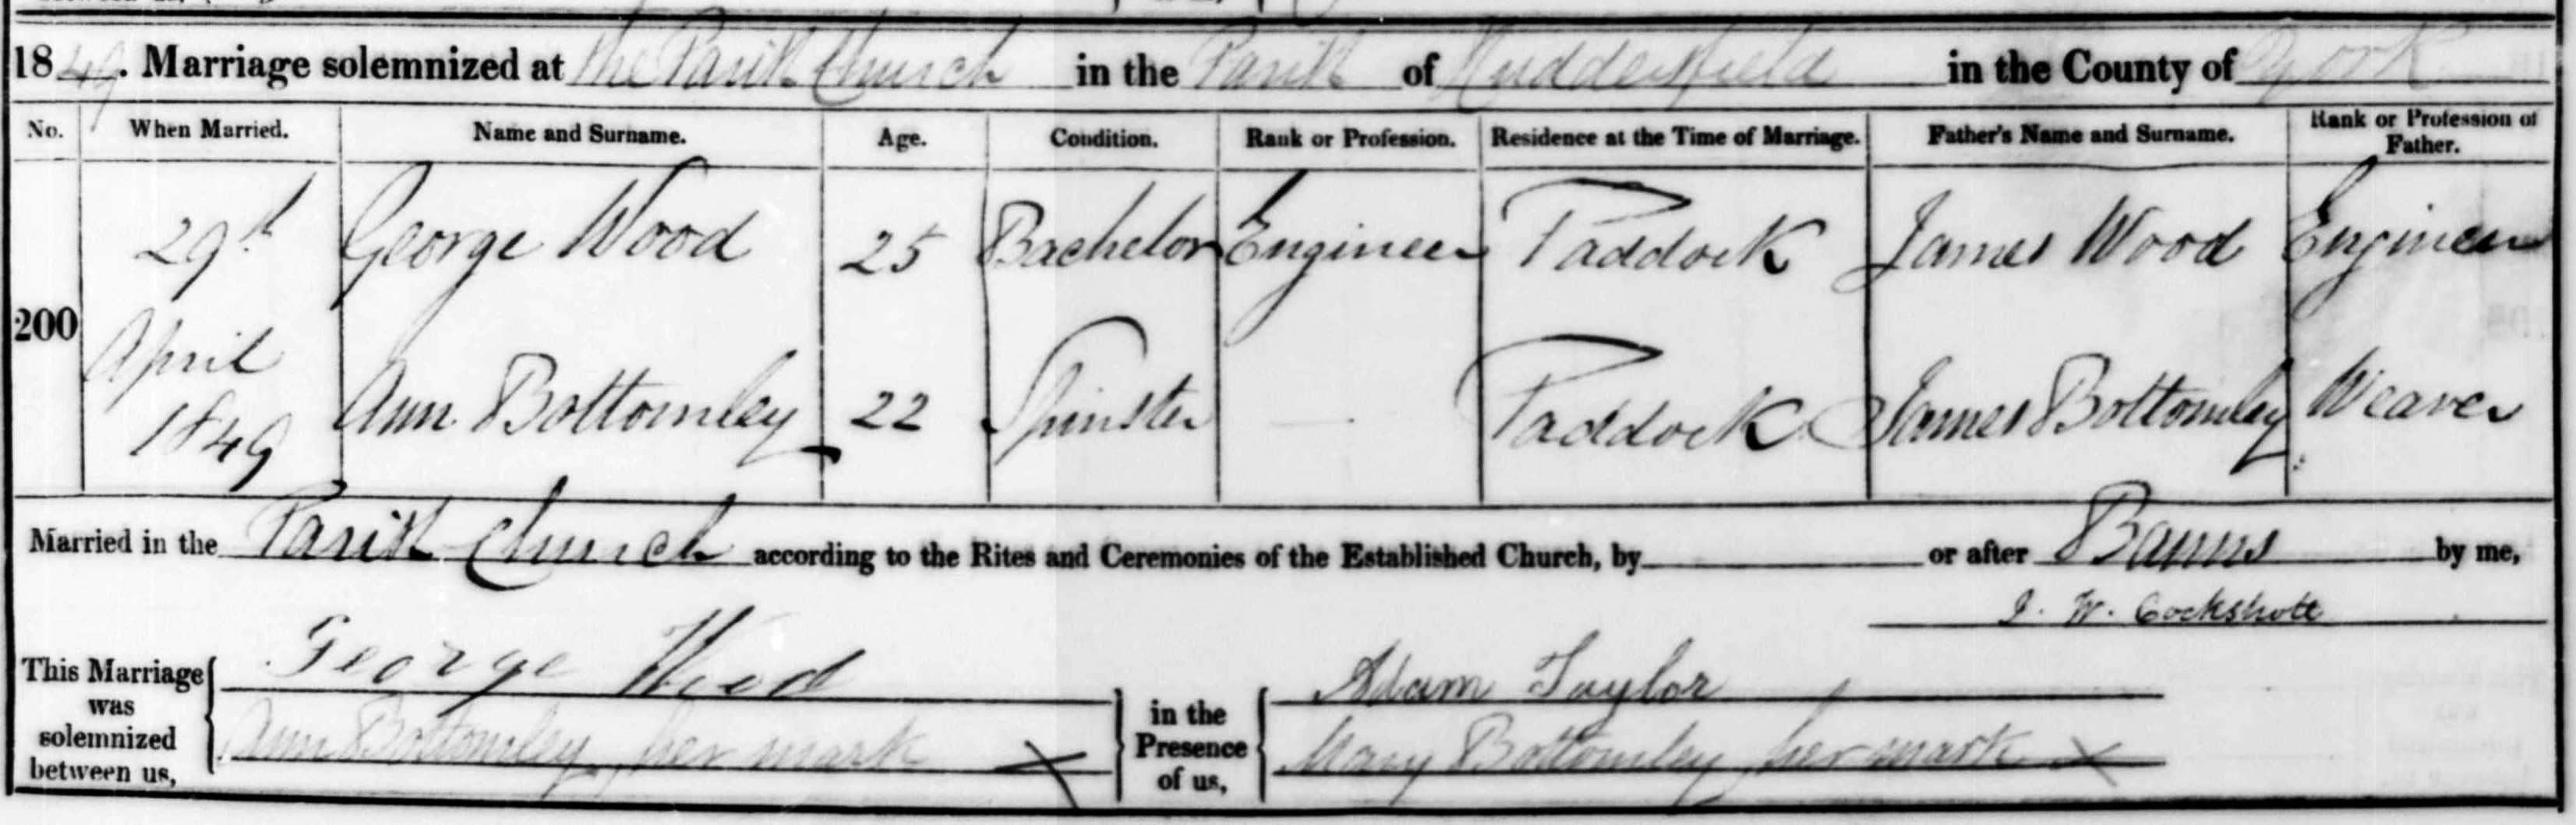 1849. Marriage solemnized at the Parish Church in the Parish of Huddersfield in the County of York
No. When Married. Name and Surname. Age. Condition. Rank or Profession. Residence at the Time of Marriage. Father's Name and Surname. Rank or Profession of Father.
200
29th April 1849
George Wood 25 Bachelor Engineer Paddock James Wood Engineer
Ann Bottomley 22 Spinster — Paddock James Bottomley Weaver
Married in the Parish Church according to the Rites and Ceremonies of the Established Church, by or after Banns by me,
J. W. Cockshott
This Marriage was solemnized between us,
George Wood
Ann Bottomley, her mark X
in the Presence of us,
Adam Taylor
Mary Bottomley her mark X